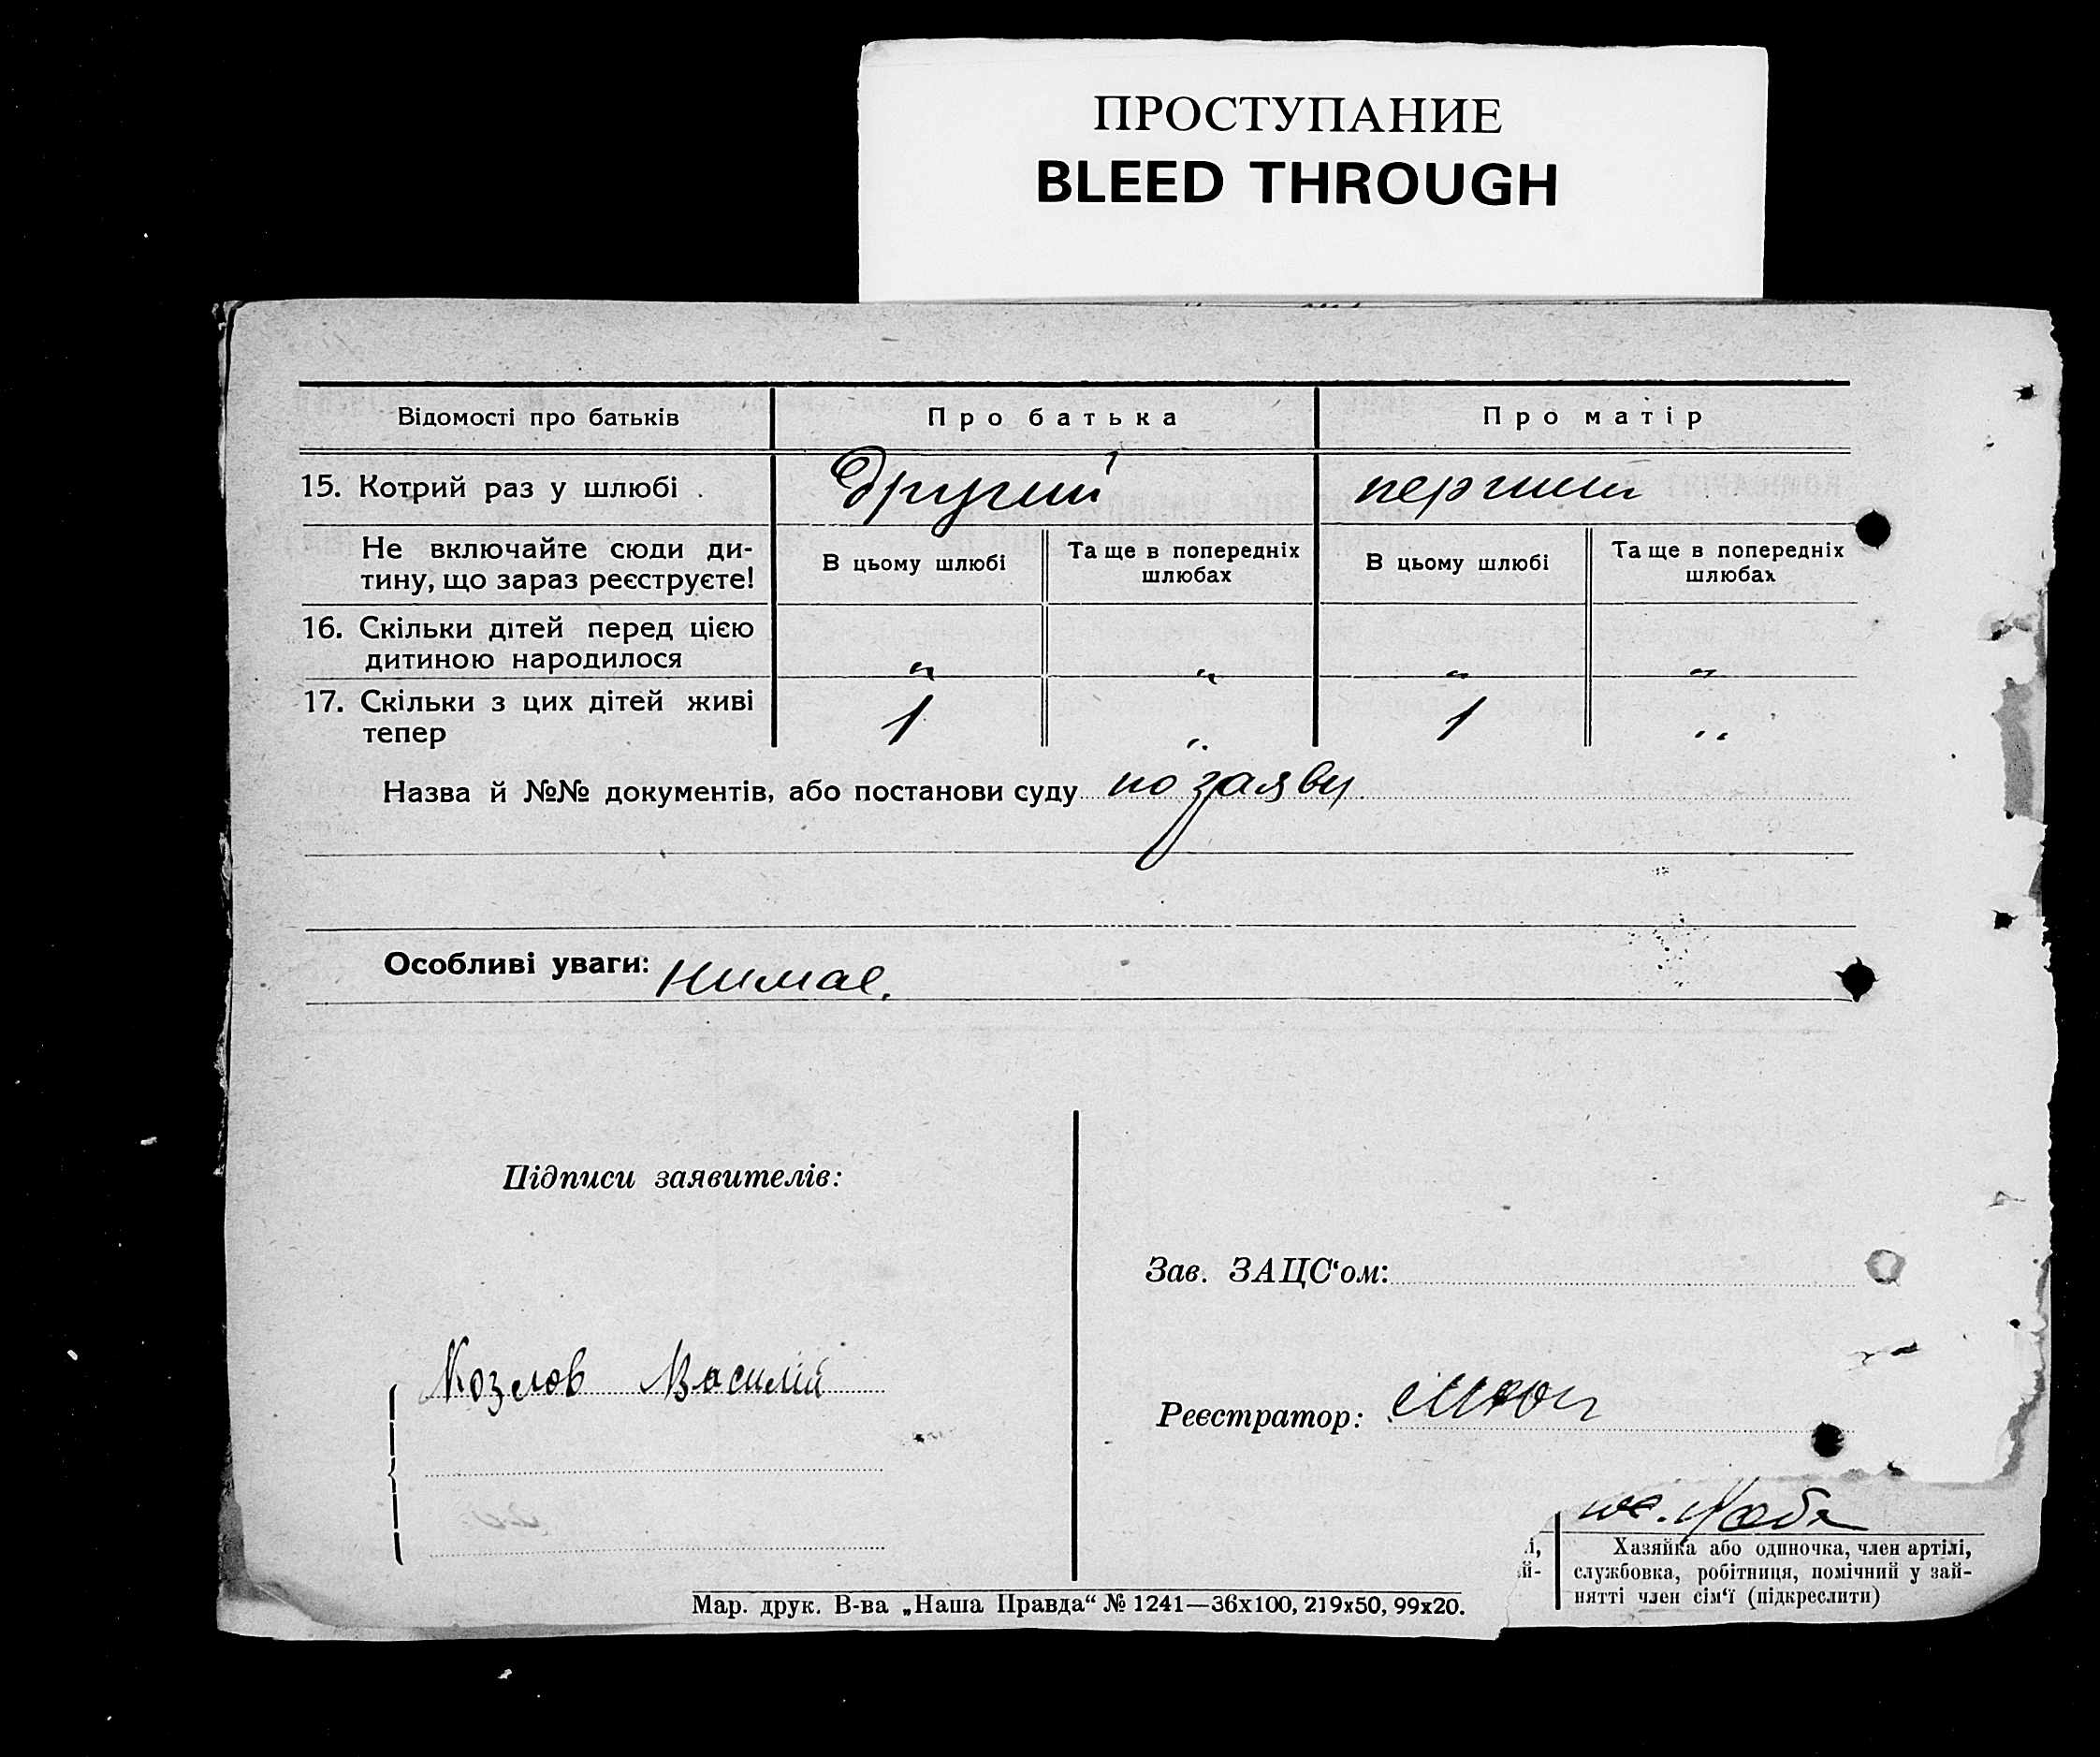 ПРОСТУПАНИЕ
BLEED THROUGH
Відомості про батьків Про батька Про матір
15. Котрий раз у шлюбі . другий перший
Не включайте сюди ди- В цьому шлюбі Та ще в попередніх В цьому шлюбі Та ще в попередніх
тину, що зараз реєструєте! шлюбах шлюбах
16. Скільки дітей перед цією
дитиною народилося " " " "
17. Скільки з цих дітей живі 1 " 1 "
тепер
Назва й №№ документів, або постанови суду по заяви
Особливі уваги: нимае.
Підписи заявителів:
Зав. ЗАЦС‘ом:
Козлов Василий
Реєстратор:
Хазяйка або одиночка, член артілі,
службовка, робітниця, помічний у зай-
нятті член сім‘ї (підкреслити)
і,
й-
Мар. друк. В-ва „Наша Правда“ № 1241—36х100, 219х50, 99х20.